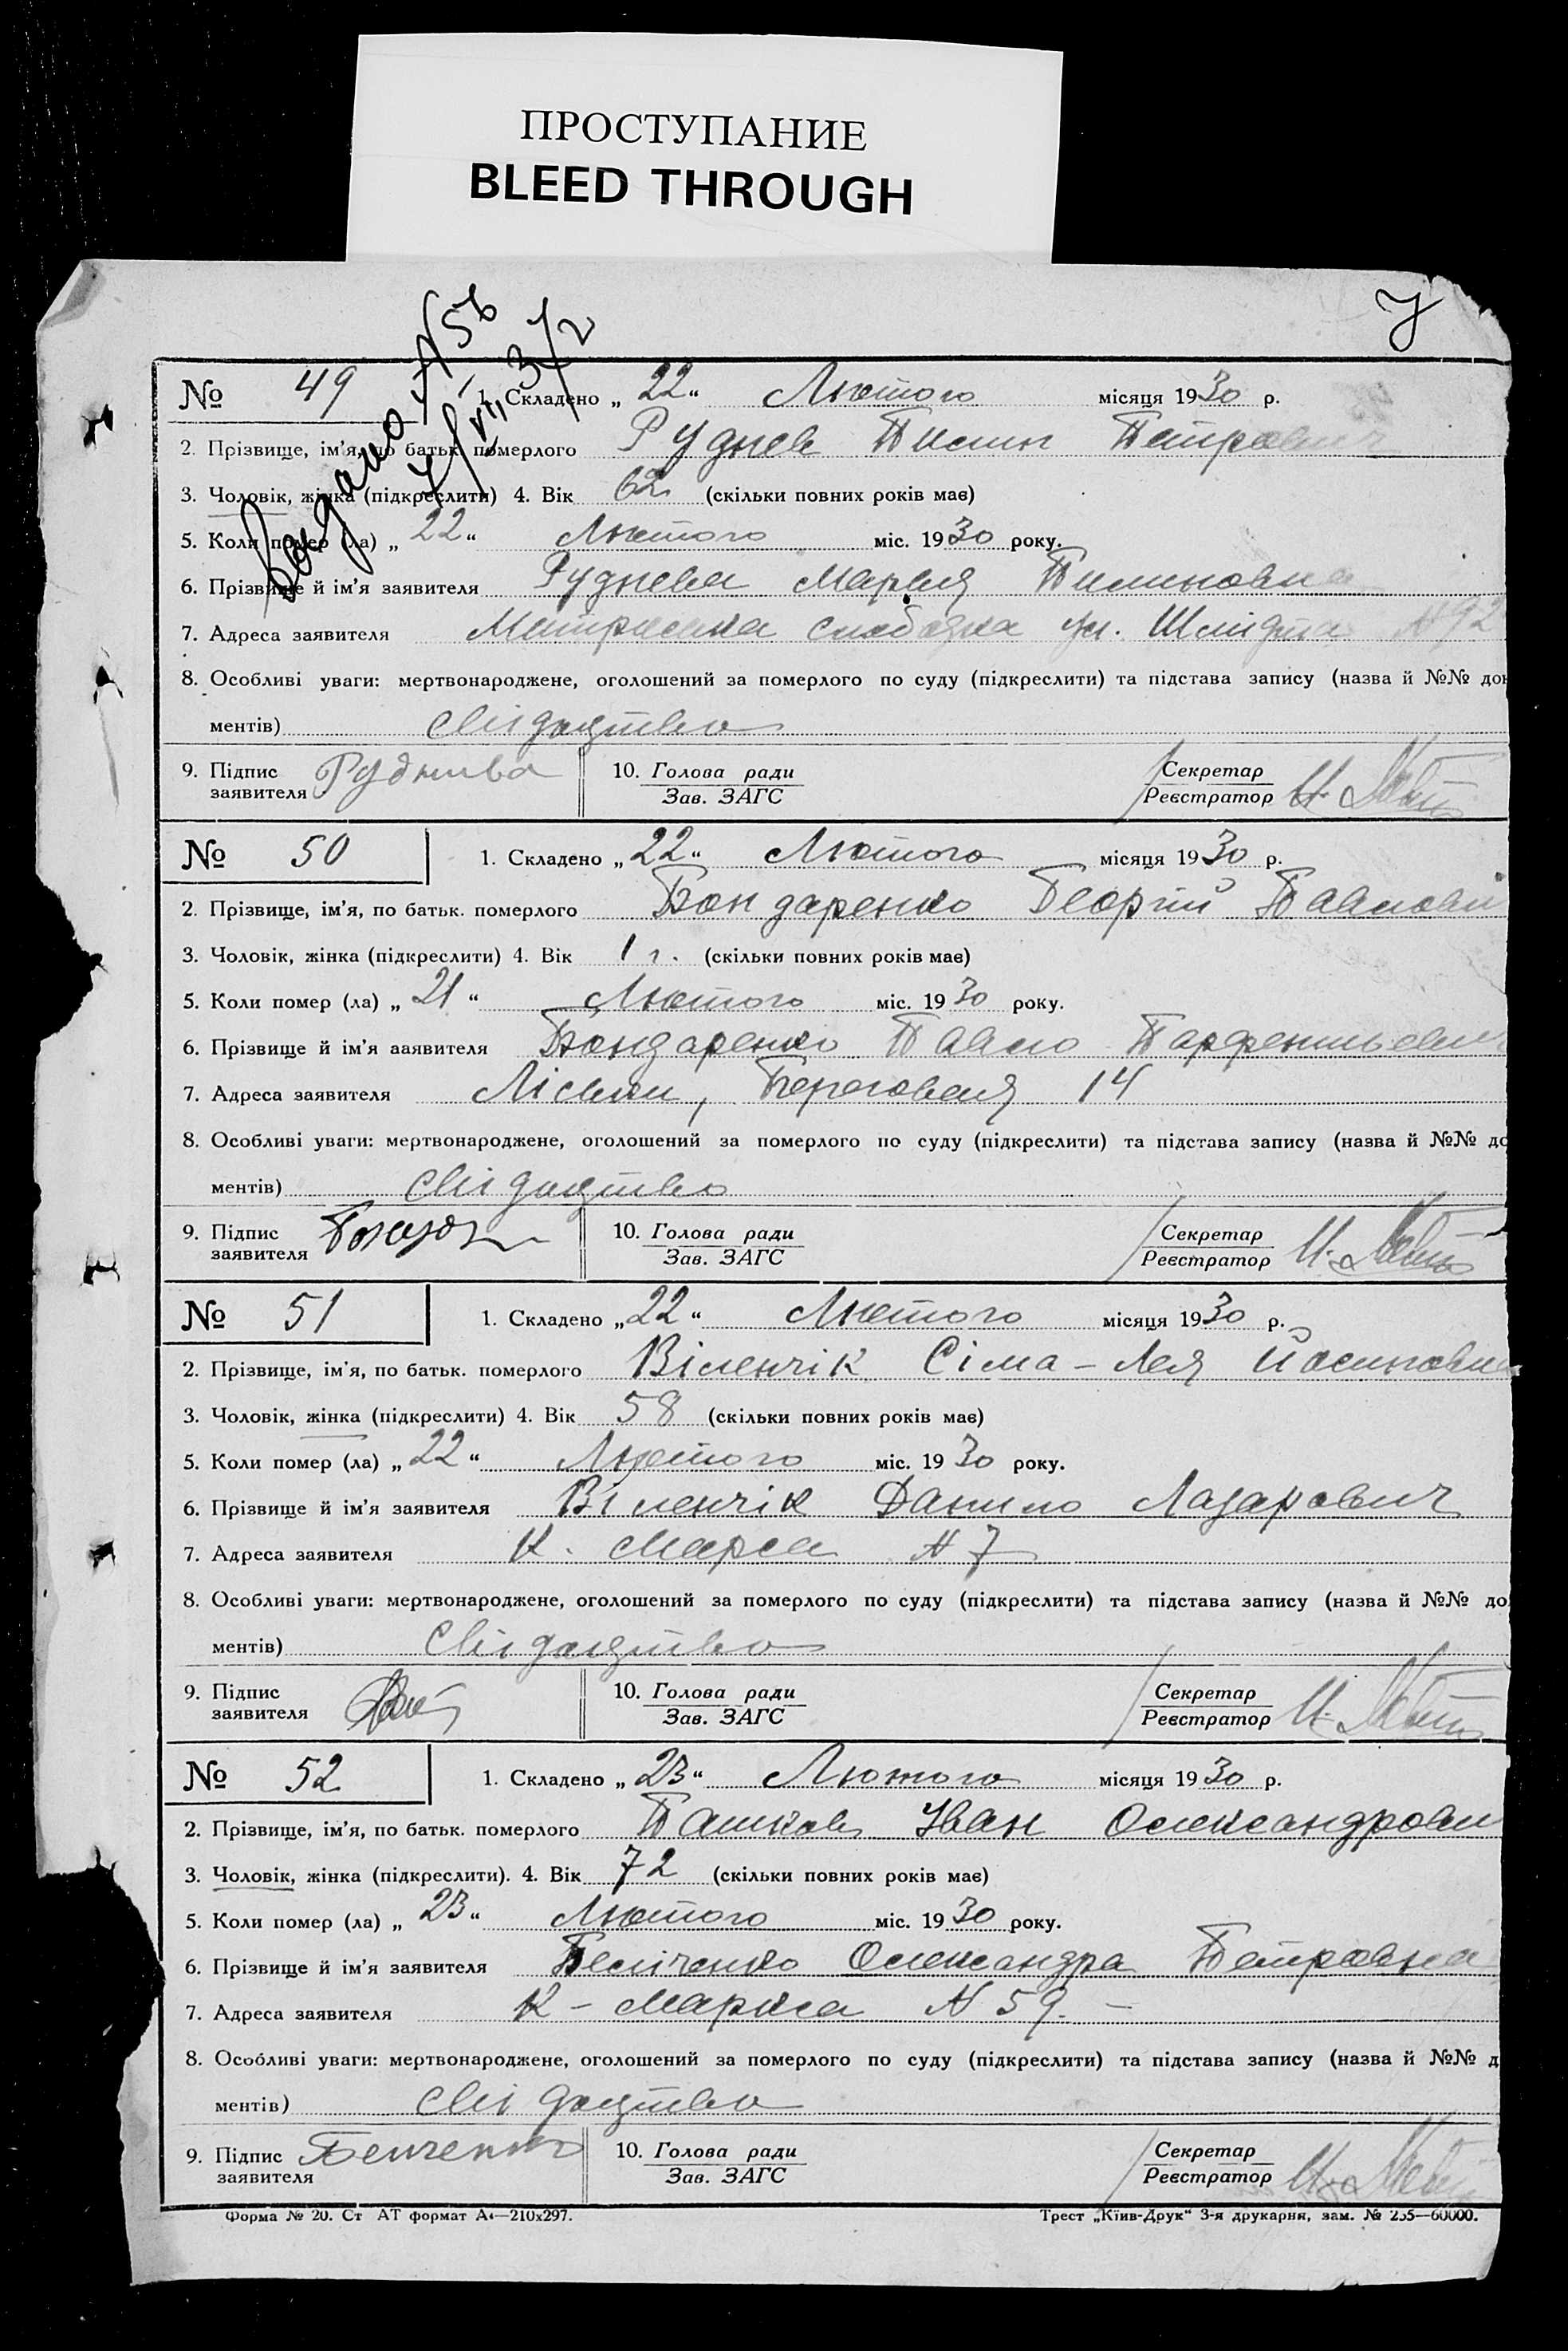 ПРОСТУПАНИЕ
BLEED THROUGH
№ 49 1. Складено „ 22 “ Лютого місяця 1930 р.
2. Прізвище, ім'я, по батьк. померлого Руднев Пилип Петрович
3. Чоловік, жінка (підкреслити) 4. Вік 62 (скільки повних років має)
5. Коли помер (ла) „ 22 “ Лютого міс. 1930 року.
6. Прізвище й ім'я заявителя Руднева Марія Пилиповна
7. Адреса заявителя слободка ул. Шмідта N 92
8. Особливі уваги: мертвонароджене, оголошений за померлого по суду (підкреслити) та підстава запису (назва й №№ док
ментів) свідоцтво
9. Підпис заявителя Руднива 10. Голова ради Секретар
Зав. ЗАГС Реєстратор
№ 50 1. Складено „ 22 “ Лютого місяця 1930 р.
2. Прізвище, ім'я, по батьк. померлого Бондаренко Георгій Павлови
3. Чоловік, жінка (підкреслити) 4. Вік 1 г. (скільки повних років має)
5. Коли помер (ла) „ 21 “ Лютого міс. 1930 року.
6. Прізвище й ім'я ааявителя Бондаренко Павло Парфентьевич
7. Адреса заявителя Ліски, Береговая 14
8. Особливі уваги: мертвонароджене, оголошений за померлого по суду (підкреслити) та підстава запису (назва й №№ до
ментів) свідоцтво
9. Підпис заявителя 10. Голова ради Секретар
Зав. ЗАГС Реєстратор
№ 51 1. Складено „ 22 “ Лютого місяця 1930 р.
2. Прізвище, ім'я, по батьк. померлого Віленчік Сіма-Лея Йосиповна
3. Чоловік, жінка (підкреслити) 4. Вік 58 (скільки повних років має)
5. Коли помер (ла) „ 22 “ Лютого міс. 1930 року.
6. Прізвище й ім'я заявителя Віленчік Данило Лазарович
7. Адреса заявителя К. Маркса N 7
8. Особливі уваги: мертвонароджене, оголошений за померлого по суду (підкреслити) та підстава запису (назва й №№ до
ментів) свідоцтво
9. Підпис заявителя 10. Голова ради Секретар
Зав. ЗАГС Реєстратор
№ 52 1. Складено „ 23 “ Лютого місяця 1930 р.
2. Прізвище, ім'я, по батьк. померлого Пашков Іван Олександрови
3. Чоловік, жінка (підкреслити). 4. Вік 72 (скільки повних років має)
5. Коли помер (ла) „ 23 “ Лютого міс. 1930 року.
6. Прізвище й ім'я заявителя Беліченко Олександра Петровна
7. Адреса заявителя К-Маркса N 59.-
8. Особливі уваги: мертвонароджене, оголошений за померлого по суду (підкреслити) та підстава запису (назва й №№ д
ментів) свідоцтво
9. Підпис заявителя 10. Голова ради Секретар
Зав. ЗАГС Реєстратор
Форма № 20. Ст АТ формат А4—210x297. Трест „Київ-Друк“ 3-я друкарня, зам. № 255—60000.